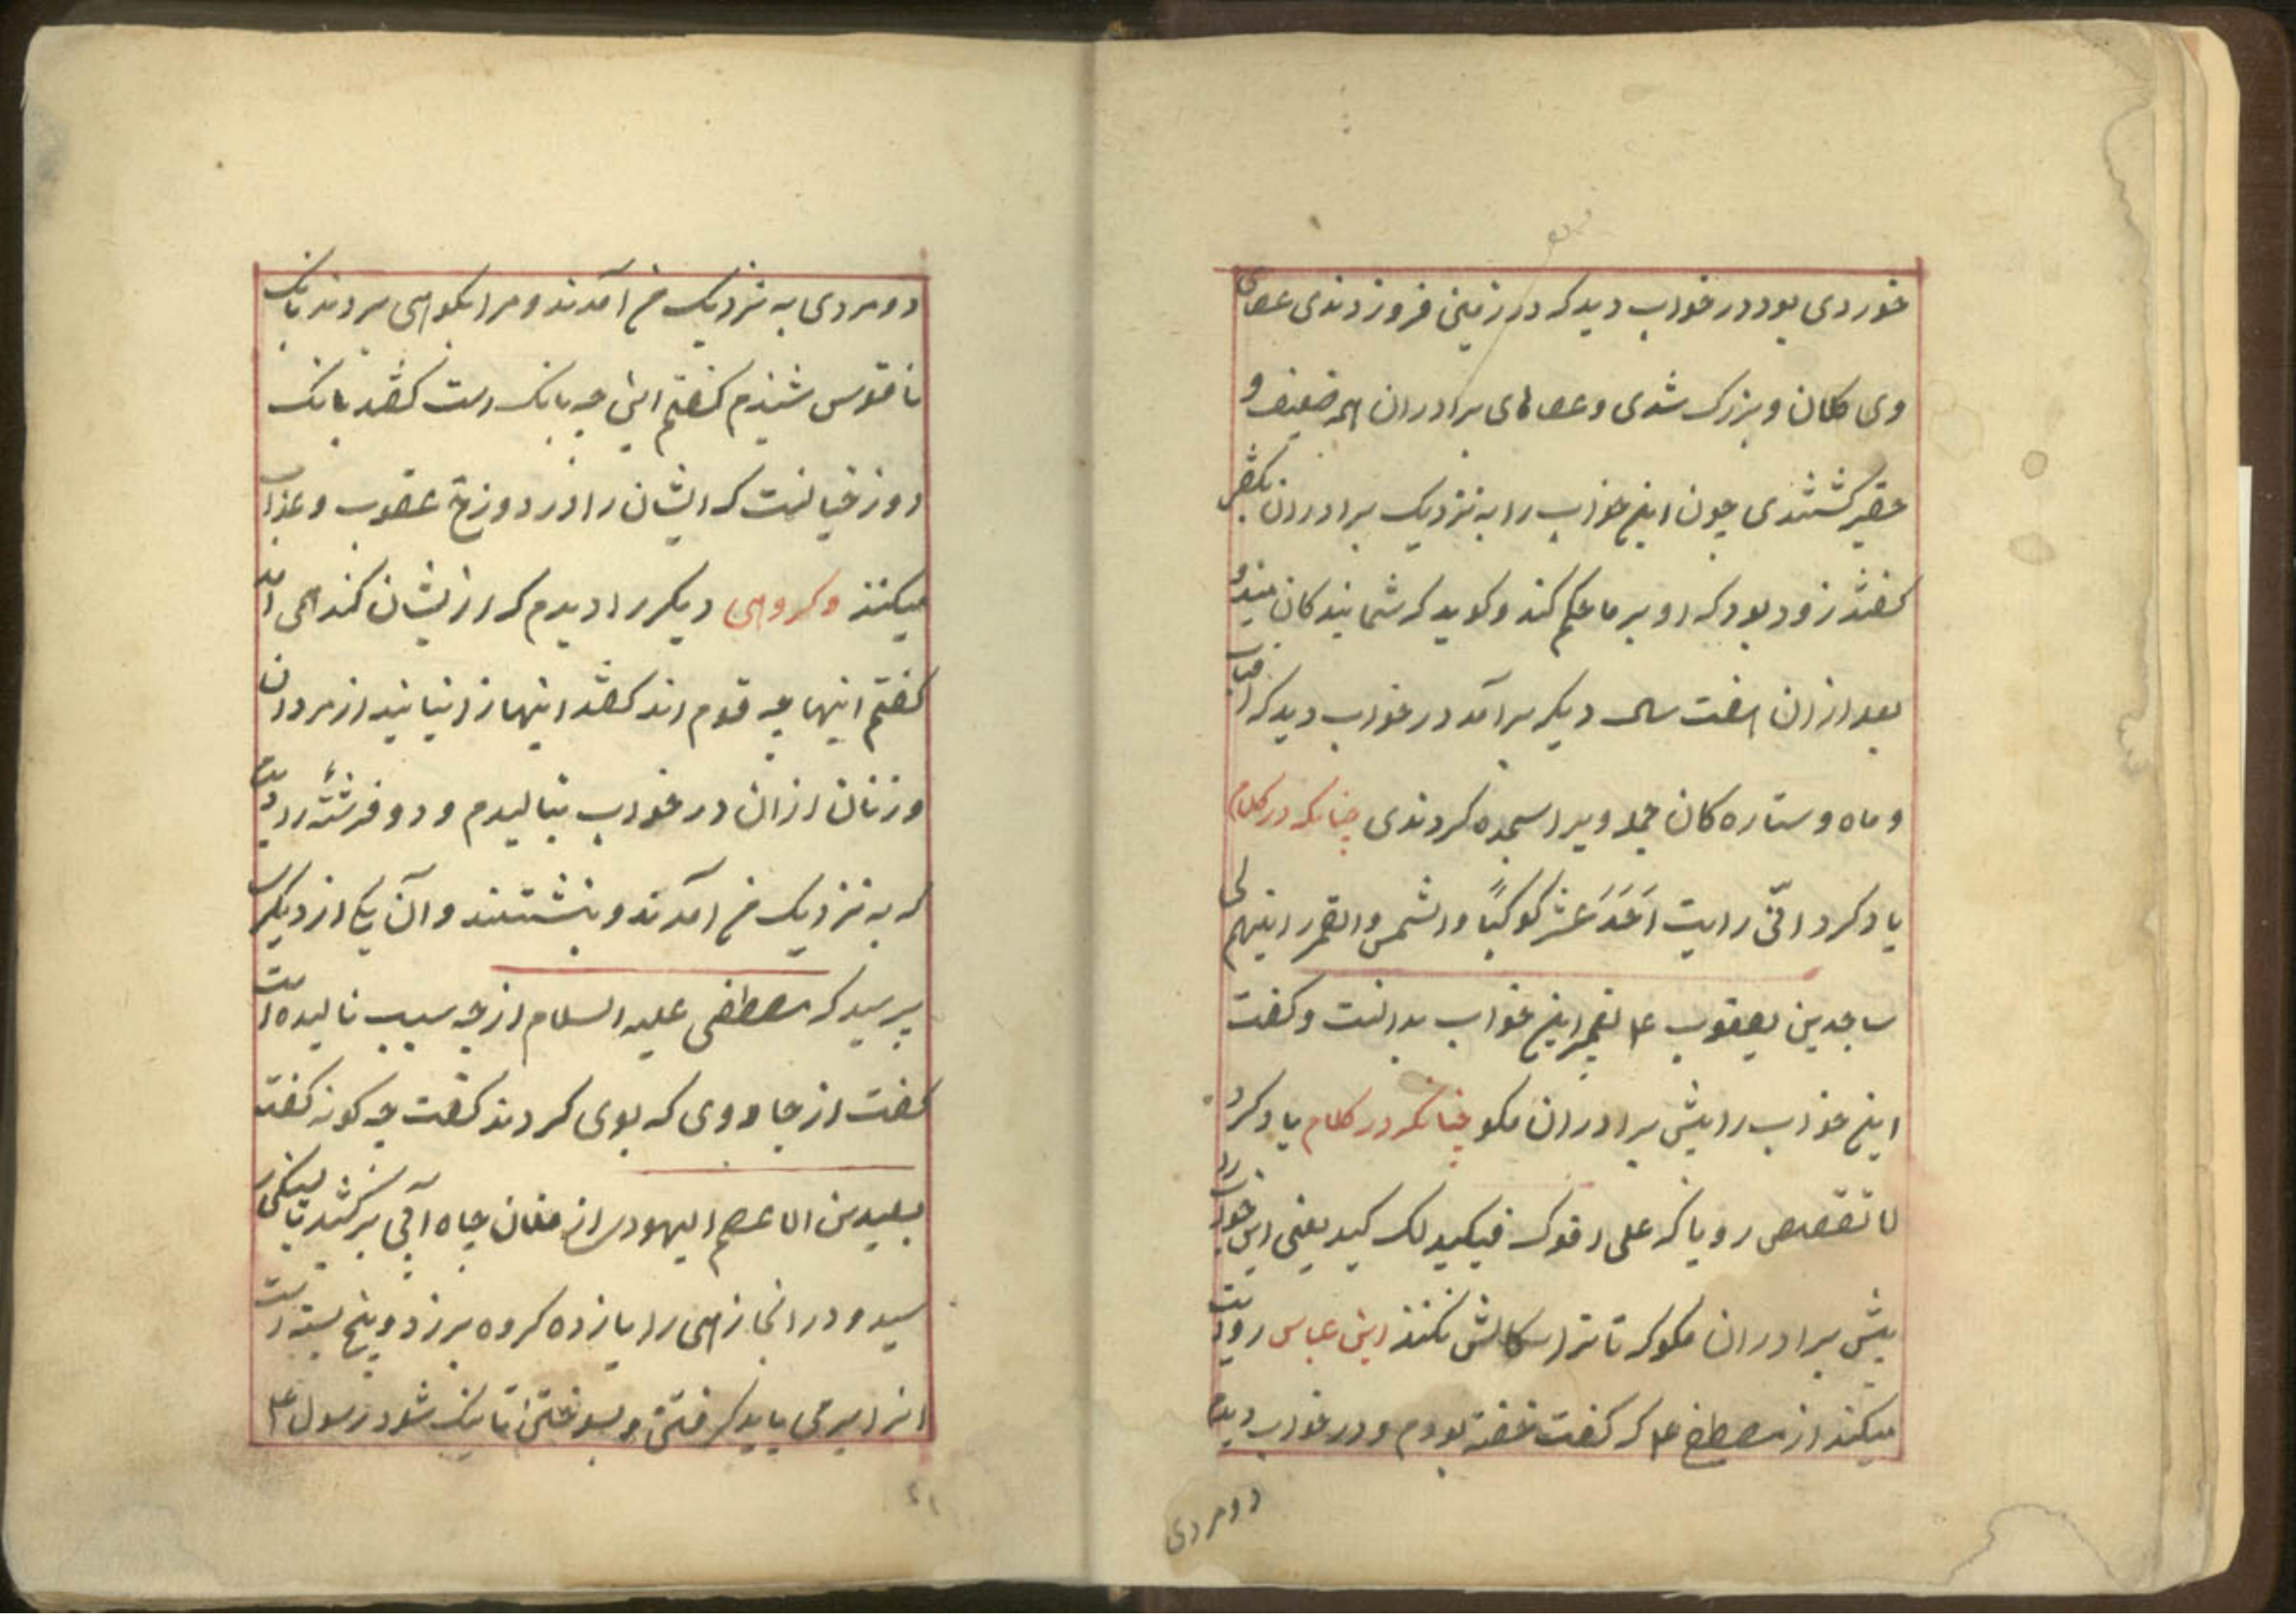 خوردی بود در خواب دید که در زمین فروزدندی عصای
وی کلان و بزرک شدی و عصاهای برادران همه ضعیف و
حقیر کشتندی چون این خواب را به نزدیک برادران بکفت
کفتند زود بود که او بر ما حکم کند و کوید که شما بندکان منید و
بعد از ان هفت سال دیکر برآمد در خواب دید که افتاب
و ماه و ستاره کان جمله ویرا سجده کردندی چنانکه در کلام
یاد کرد انّی رایت اَحَدَ عَشَرَ کوکبًا والشمس والقمر رایتهم لی
ساجدین یعقوب ع۴ تعبیر این خواب بدانست و کفت
این خواب را پیش برادران مکو چنانکه در کلام یاد کرد
لا تقصص رویاک علی اخوک فیکید لک کید یعنی این خواب را
پیش برادران مکو که تا ترا سکالش نکنند ابن عباس روایت
میکند از مصطفی ع۴ که کفت خفته بودم و در خواب دیدم
دو مردی
دو مردی به نزدیک من آمدند و مرا بکوهی بردند بانک
ناقوس شنیدم کفتم این چه بانک است کفتند بانک
دوزخیانست که ایشان را در دوزخ عقوب و عذاب
میکنند و کروهی دیکر را دیدم که از ایشان کند همی آمد
کفتم اینها چه قوم اند کفتند اینها زانیانند از مردان
و زنان از ان در خواب بنالیدم و دو فرشتهٔ را دیدم
که به نزدیک من آمدند و بنشستند و آن یکی از دیکر
پرسید که مصطفی علیه السلام از چه سبب نالیده است
کفت از جادوی که بوی کردند کفت چه کونه کفت
بعیدین الاعصم الیهود از فغان چاه آبی برکشید
سید و در انجا زهی را یازده کروه برزد و پنج بسته است
انرا بیرون باید کرفتن و بسوختن تا نیک شود رسول ع۴
۲۱